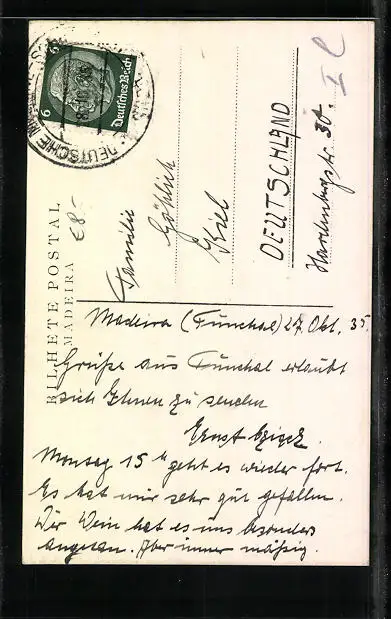 BILHETE POSTAL
MADEIRA
€8-
6
6
Deutsches Reich
DEUTSCHE
Familie
Göhlich
Kiel
DEUTSCHLAND
Hardenbergstr. 30.
I c
Madeira (Funchal) 27. Okt. 35.
Grüße aus Funchal erlaubt
sich Ihnen zu senden
Ernst
Montag 15 h geht es wieder fort.
Es hat mir sehr gut gefallen.
Der Wein hat es uns besonders
angetan. Aber immer mäßig.